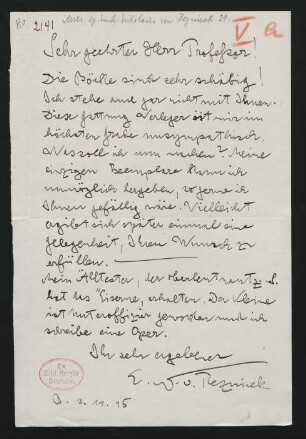 Ho 2141
Mus. ep. Emil Nikolaus von Reznicek 29.
V
Sehr geehrter Herr Professor!
Die Böcke sind sehr schäbig!
Ich stehe auch gar nicht mit Ihnen.
Diese Gattung Verleger ist mir im
höchsten Grade unsympathisch.
Was soll ich nun machen? Meine
einzigen Exemplare kann ich
unmöglich hergeben, so gerne ich
Ihnen gefällig wäre. Vielleicht
ergibt sich später einmal eine
Gelegenheit, Ihren Wunsch zu
erfüllen.
Mein Ältester, der Oberleutnant z. S.
hat das "Eiserne" erhalten. Der Kleine
ist Unteroffizier geworden und ich
schreibe eine Oper.
Ihr sehr ergebener
E. N. v. Reznicek
Ex
Bibl. Regia
Berolin.
B. 2. 11. 15